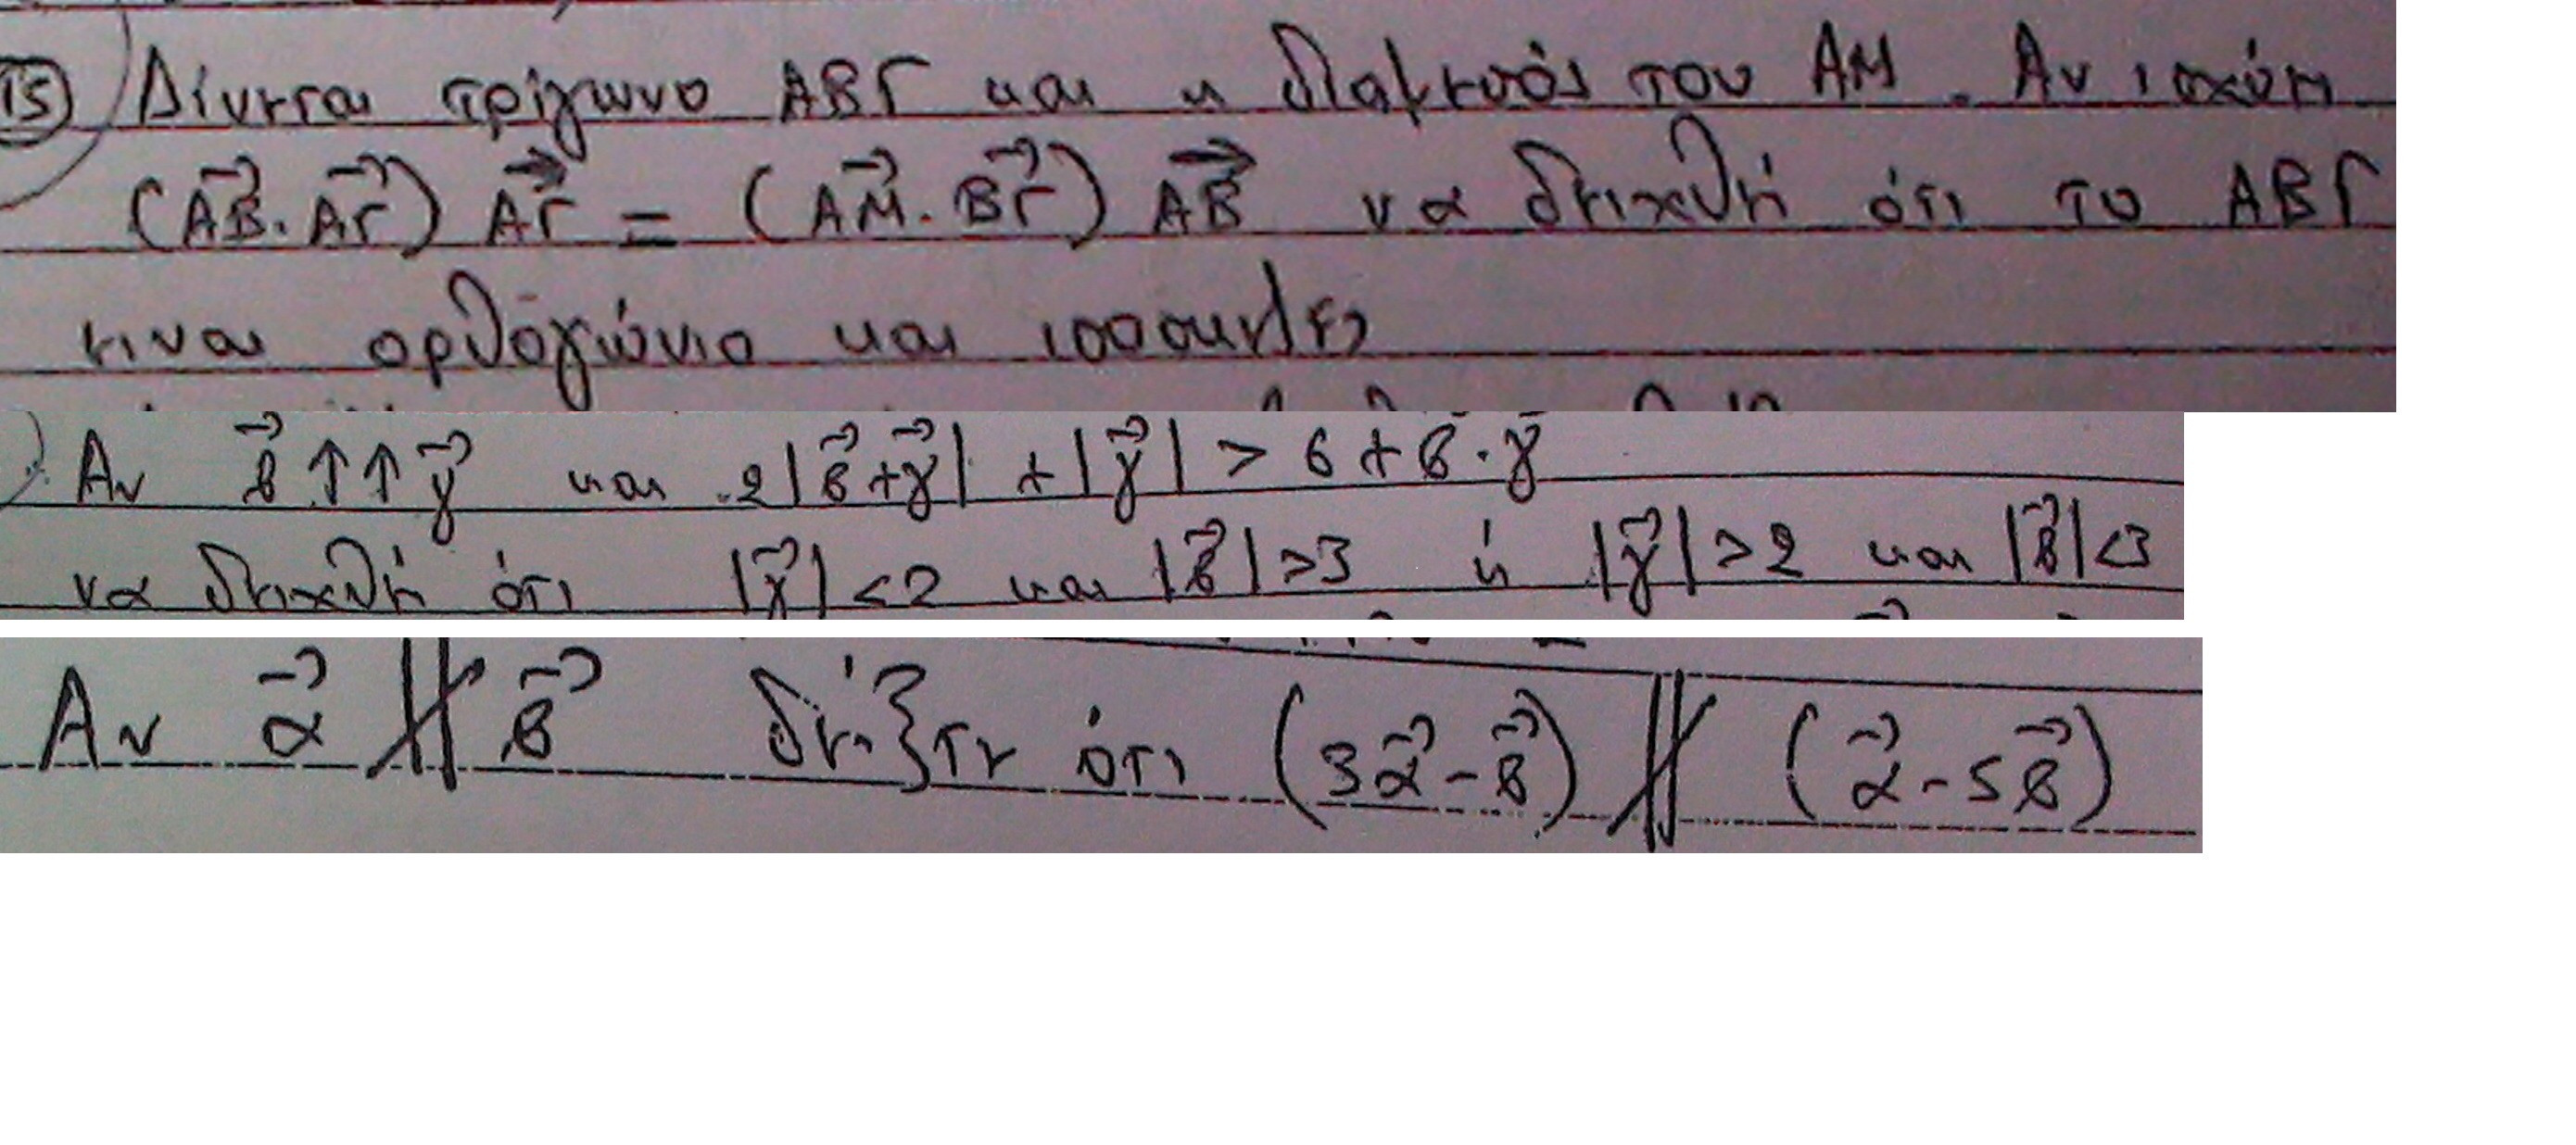 15) Δίνεται τρίγωνο ΑΒΓ και η διάμεσός του ΑΜ. Αν ισχύει
(ΑΒ⃗ · ΑΓ⃗) ΑΓ⃗ = (ΑΜ⃗ · ΒΓ⃗) ΑΒ⃗ να δειχθεί ότι το ΑΒΓ
ειναι ορθογώνιο και ισοσκελές
Αν β⃗ ↑↑ γ⃗ και 2|β⃗+γ⃗| + |γ⃗| > 6 + β⃗ · γ⃗
να δειχθεί ότι |γ⃗| < 2 και |β⃗| > 3 ή |γ⃗| > 2 και |β⃗| < 3
Αν α⃗ ∦ β⃗ δείξτε ότι (3α⃗ - β⃗) ∦ (α⃗ - 5β⃗)